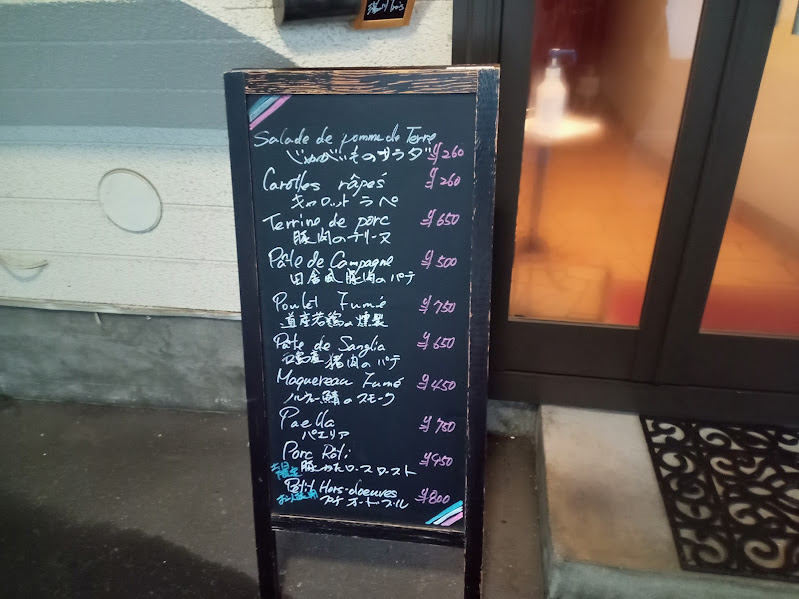 Salade de pomme de Terre
じゃがいものサラダ ¥260
Carottes râpés ¥260
キャロットラペ
Terrine de porc ¥650
豚肉のテリーヌ
Pâte de Campagne ¥500
田舎風豚肉のパテ
Poulet Fumé ¥750
道産若鶏の燻製
Pâte de Sanglia ¥650
猪肉のパテ
Maquereau Fumé ¥450
ノルウェー鯖のスモーク
Paella ¥750
パエリア
Porc Rôti ¥950
土日限定 豚かたロースロースト
Petit Hors-doeuvres ¥800
プチオードブル